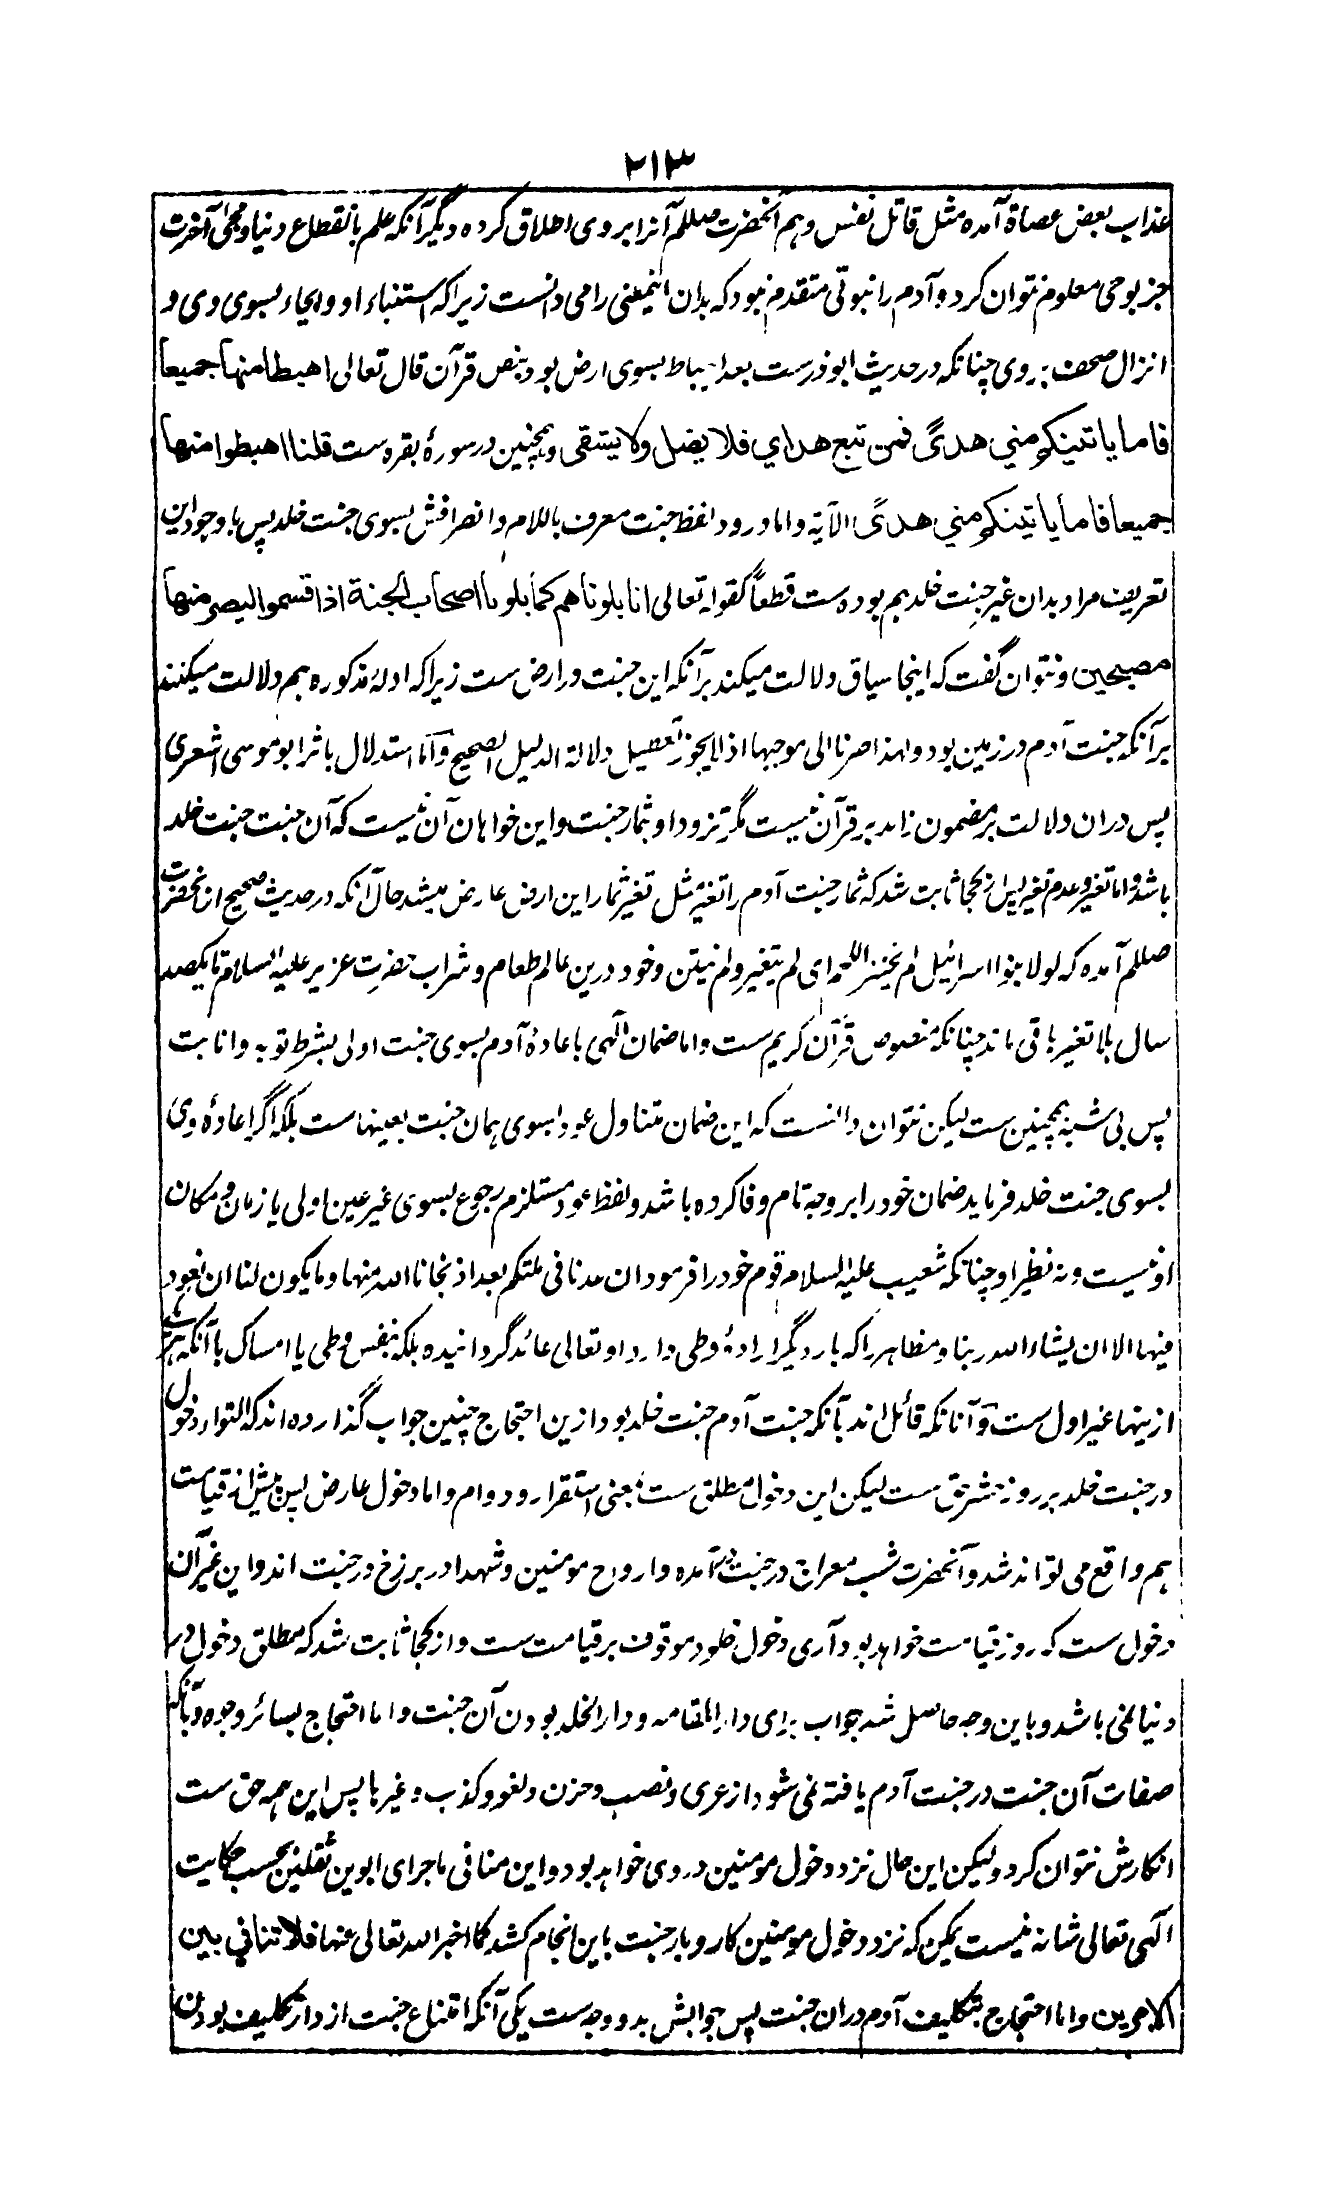 ٢١٣
عذاب بعض عصاة آمده مثل قاتل نفس و هم آنحضرت صللم آنرا بروی اطلاق کرده دیگر آنکه علم بانقطاع دنیا و مجئ آخرت
جز بوحی معلوم نتوان کرد و آدم را نبوتی متقدم نبود که بدان اینمعنی را می دانست زیرا که استنباء او و ایحاء بسوی وی و
انزال صحف بروی چنانکه در حدیث ابوذرست بعد اهباط بسوی ارض بود بنص قرآن قال تعالی اهبطا منها جمیعا
فاما یاتینکم مني هدی فمن تبع هداي فلا یضل ولا یشقی و همچنین در سورۀ بقره ست قلنا اهبطوا منها
جمیعا فاما یاتینکم مني هدی الآیة و اما ورود لفظ جنت معرف باللام و انصرافش بسوی جنت خلد پس باوجود این
تعریف مراد بدان غیر جنت خلد هم بوده ست قطعاً کقوله تعالی انا بلوناهم کما بلونا اصحاب الجنة اذ اقسموا لیصرمنها
مصبحین و نتوان گفت که اینجا سیاق دلالت میکند بر آنکه این جنت در ارض ست زیرا که ادلۀ مذکوره هم دلالت میکنند
بر آنکه جنت آدم در زمین بود و لهذا صرنا الی موجبها اذ لا یجوز تعطیل دلالة الدلیل الصحیح و اما استدلال باثر ابو موسی اشعری
پس دران دلالت بر مضمون زائد بر قرآن نیست مگر تزود او بثمار جنت و این خواهان آن نیست که آن جنت جنت خلد
باشد و اما تغیر و عدم تغیر پس از کجا ثابت شد که ثمار جنت آدم را تغیر مثل تغیر ثمار این ارض عارض میشد حال آنکه در حدیث صحیح از آنحضرت
صللم آمده که لولا بنوا اسرائیل لم یخنز اللحم ای لم یتغیر ولم ینتن و خود درین عالم طعام و شراب حضرت عزیر علیه السلام تا یکصد
سال بلا تغیر باقی ماند چنانکه منصوص قرآن کریم ست و اما ضمان الهی باعادۀ آدم بسوی جنت اولی بشرط توبه و انابت
پس بی شبهه همچنین ست لیکن نتوان دانست که این ضمان متناول عود بسوی همان جنت بعینها ست بلکه اگر اعادۀ وی
بسوی جنت خلد فرماید ضمان خود را بروجه تام وفا کرده باشد و لفظ عود مستلزم رجوع بسوی غیر عین اولی یا زمان و مکان
او نیست و نه نظیر او چنانکه شعیب علیه السلام قوم خود را فرمود ان عدنا فی ملتکم بعد اذ نجانا الله منها و ما یکون لنا ان نعود
فیها الا ان یشاء الله ربنا و مظاهر را که بار دیگر ارادۀ وطی دارد او تعالی عائد گردانیده بلکه بنفس وطی یا امساک با آنکه هر یکی
ازینها غیر اول ست و آنانکه قائل اند بآنکه جنت آدم جنت خلد بود ازین احتجاج چنین جواب گذارده اند که التواء دخول
در جنت خلد بروز حشر حق ست لیکن این دخول مطلق ست بمعنی استقرار و دوام و اما دخول عارض پس پیش از قیامت
هم واقع می تواند شد و آنحضرت شب معراج در جنت در آمده و ارواح مومنین و شهدا در برزخ در جنت اند و این غیر آن
دخول ست که روز قیامت خواهد بود آری دخول خلود موقوف بر قیامت ست و از کجا ثابت شد که مطلق دخول در
دنیا نمی باشد و باین وجه حاصل شد جواب برای دار المقامه و دار الخلد بودن آن جنت و اما احتجاج بسائر وجوه و بآنکه
صفات آن جنت در جنت آدم یافته نمی شود از عری و نصب و حزن و لغو و کذب و غیرها پس این همه حق ست
انکارش نتوان کرد و لیکن این حال نزد دخول مومنین در وی خواهد بود و این منافی ماجرای ابوین ثقلین بحسب حکایت
الهی تعالی شانه نیست یمکن که نزد دخول مومنین کار و بار جنت باین انجام کشد کما اخبر الله تعالی عنها فلا تنافي بین
الامرین و اما احتجاج بتکلیف آدم دران جنت پس جوابش بدو وجه ست یکی آنکه امتناع جنت از دار تکلیف بودن